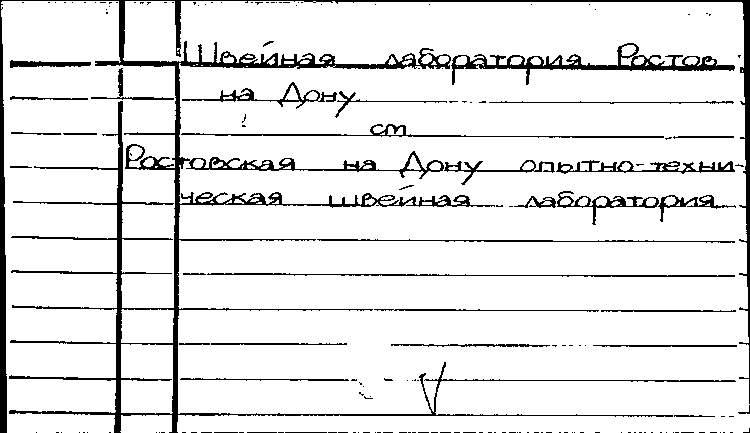 Швейная лаборатория Ростов
на Дону
см
Ростовская на Дону опытно-техни-
ческая швейная лаборатория